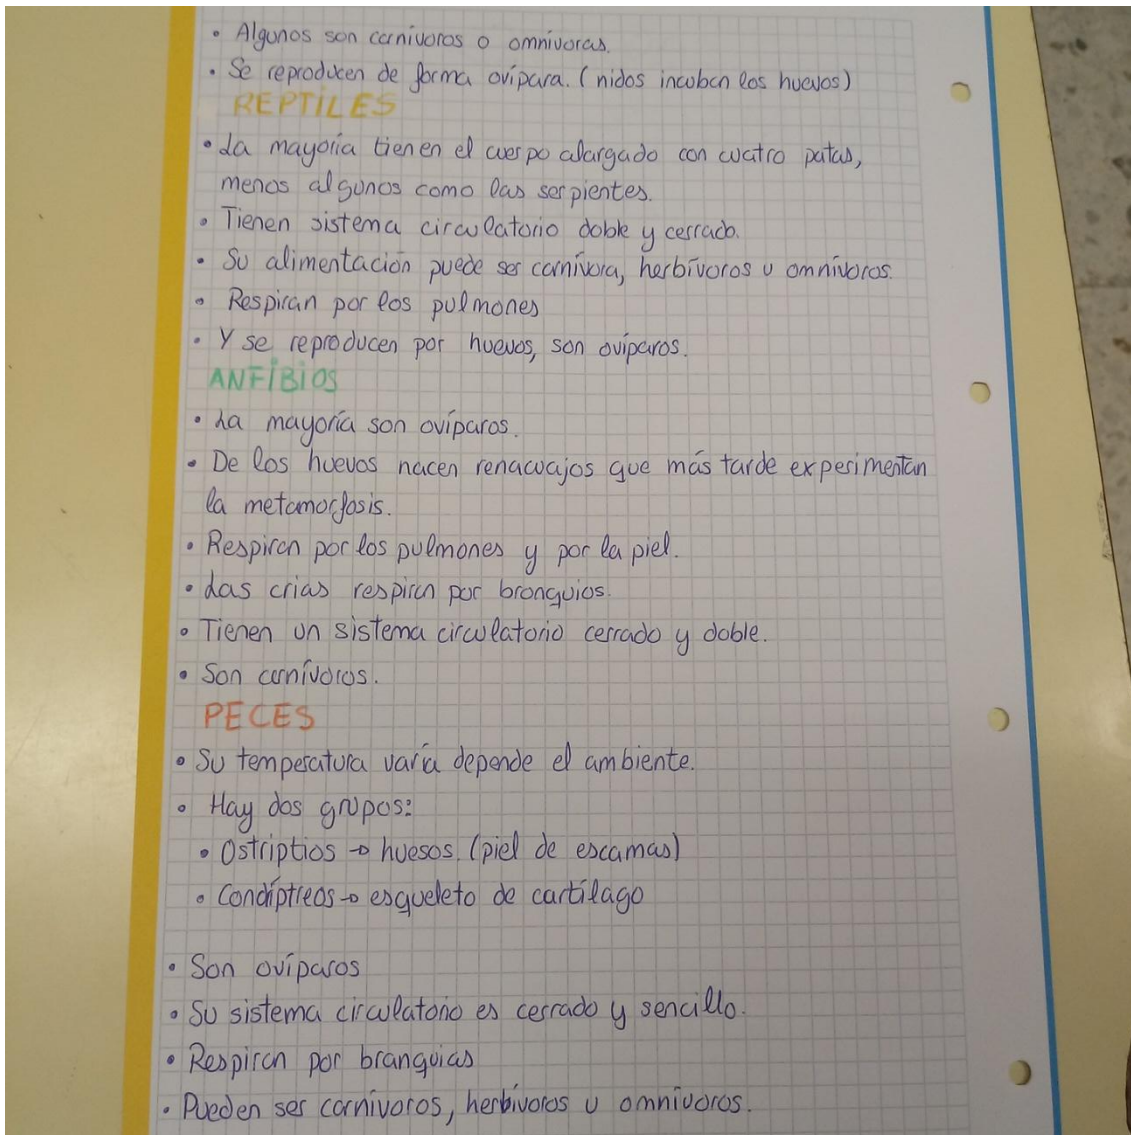 • Algunos son carnívoros o omnívoras.
• Se reproducen de forma ovípara. (nidos incuban los huevos)
REPTILES
• La mayoría tienen el cuerpo alargado con cuatro patas,
menos algunos como las serpientes.
• Tienen sistema circulatorio doble y cerrado.
• Su alimentación puede ser carnívora, herbívoros u omnívoros.
• Respiran por los pulmones
• Y se reproducen por huevos, son ovíparos.
ANFIBIOS
• La mayoría son ovíparos.
• De los huevos nacen renacuajos que más tarde experimentan
la metamorfosis.
• Respiran por los pulmones y por la piel.
• Las crias respiran por bronquios.
• Tienen un sistema circulatorio cerrado y doble.
• Son carnívoros.
PECES
• Su temperatura varía depende el ambiente.
• Hay dos grupos:
• Ostriptios → huesos (piel de escamas)
• Condíptreos → esqueleto de cartílago
• Son ovíparos
• Su sistema circulatorio es cerrado y sencillo.
• Respiran por branquias
• Pueden ser carnívoros, herbívoros u omnívoros.